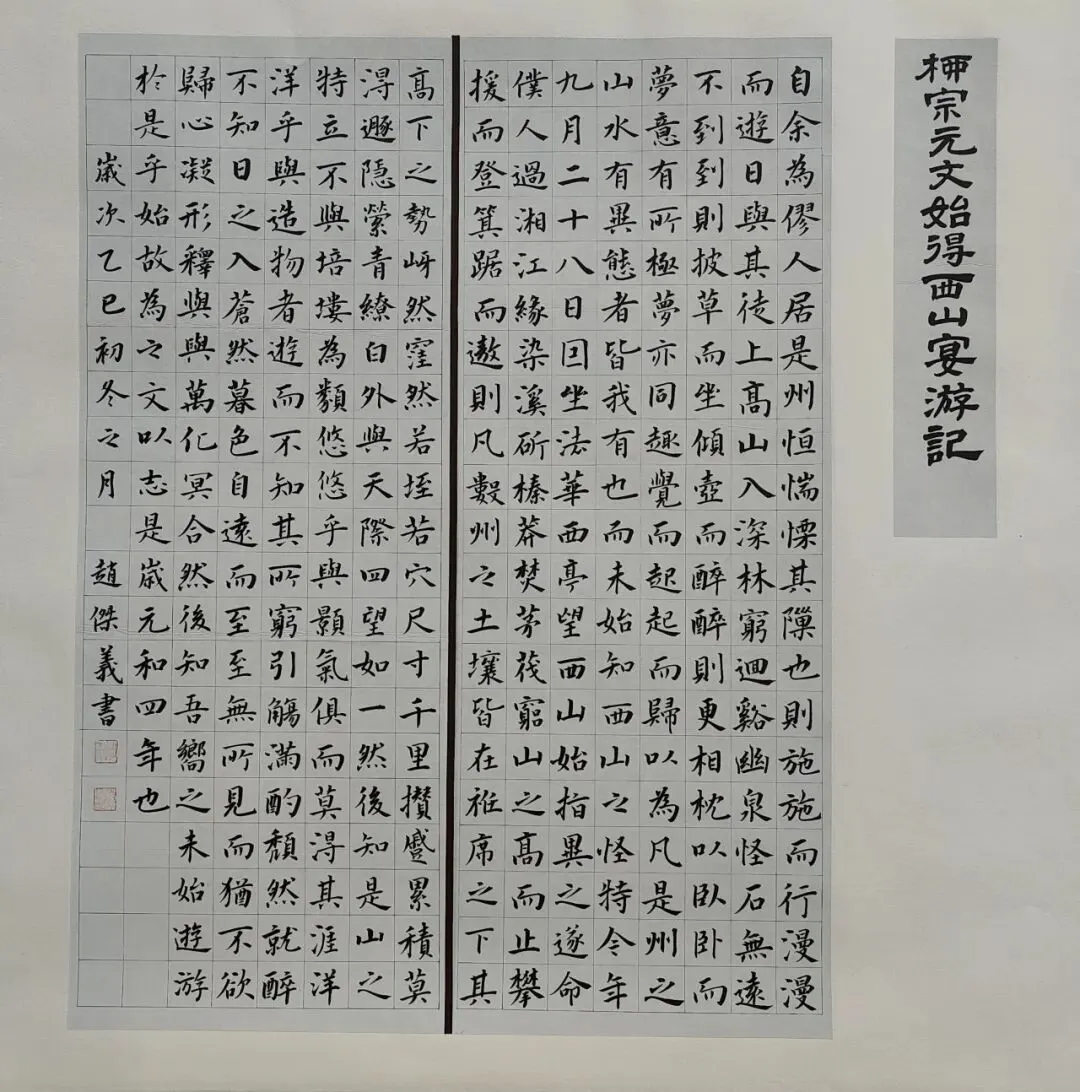 柳宗元文始得西山宴游記
自余為僇人居是州恒惴慄其隟也則施施而行漫漫
而遊日與其徒上高山入深林窮迴谿幽泉怪石無遠
不到到則披草而坐傾壺而醉醉則更相枕以臥臥而
夢意有所極夢亦同趣覺而起起而歸以為凡是州之
山水有異態者皆我有也而未始知西山之怪特今年
九月二十八日因坐法華西亭望西山始指異之遂命
僕人過湘江緣染溪斫榛莽焚茅茷窮山之高而止攀
援而登箕踞而遨則凡數州之土壤皆在衽席之下其
高下之勢岈然窪然若垤若穴尺寸千里攢蹙累積莫
淂遯隱縈青繚白外與天際四望如一然後知是山之
特立不與培塿為類悠悠乎與顥氣俱而莫淂其涯洋
洋乎與造物者遊而不知其所窮引觴滿酌頹然就醉
不知日之入蒼然暮色自遠而至至無所見而猶不欲
歸心凝形釋與與萬化冥合然後知吾嚮之未始遊游
於是乎始故為之文以志是歲元和四年也
歲次乙巳初冬之月 趙傑義書